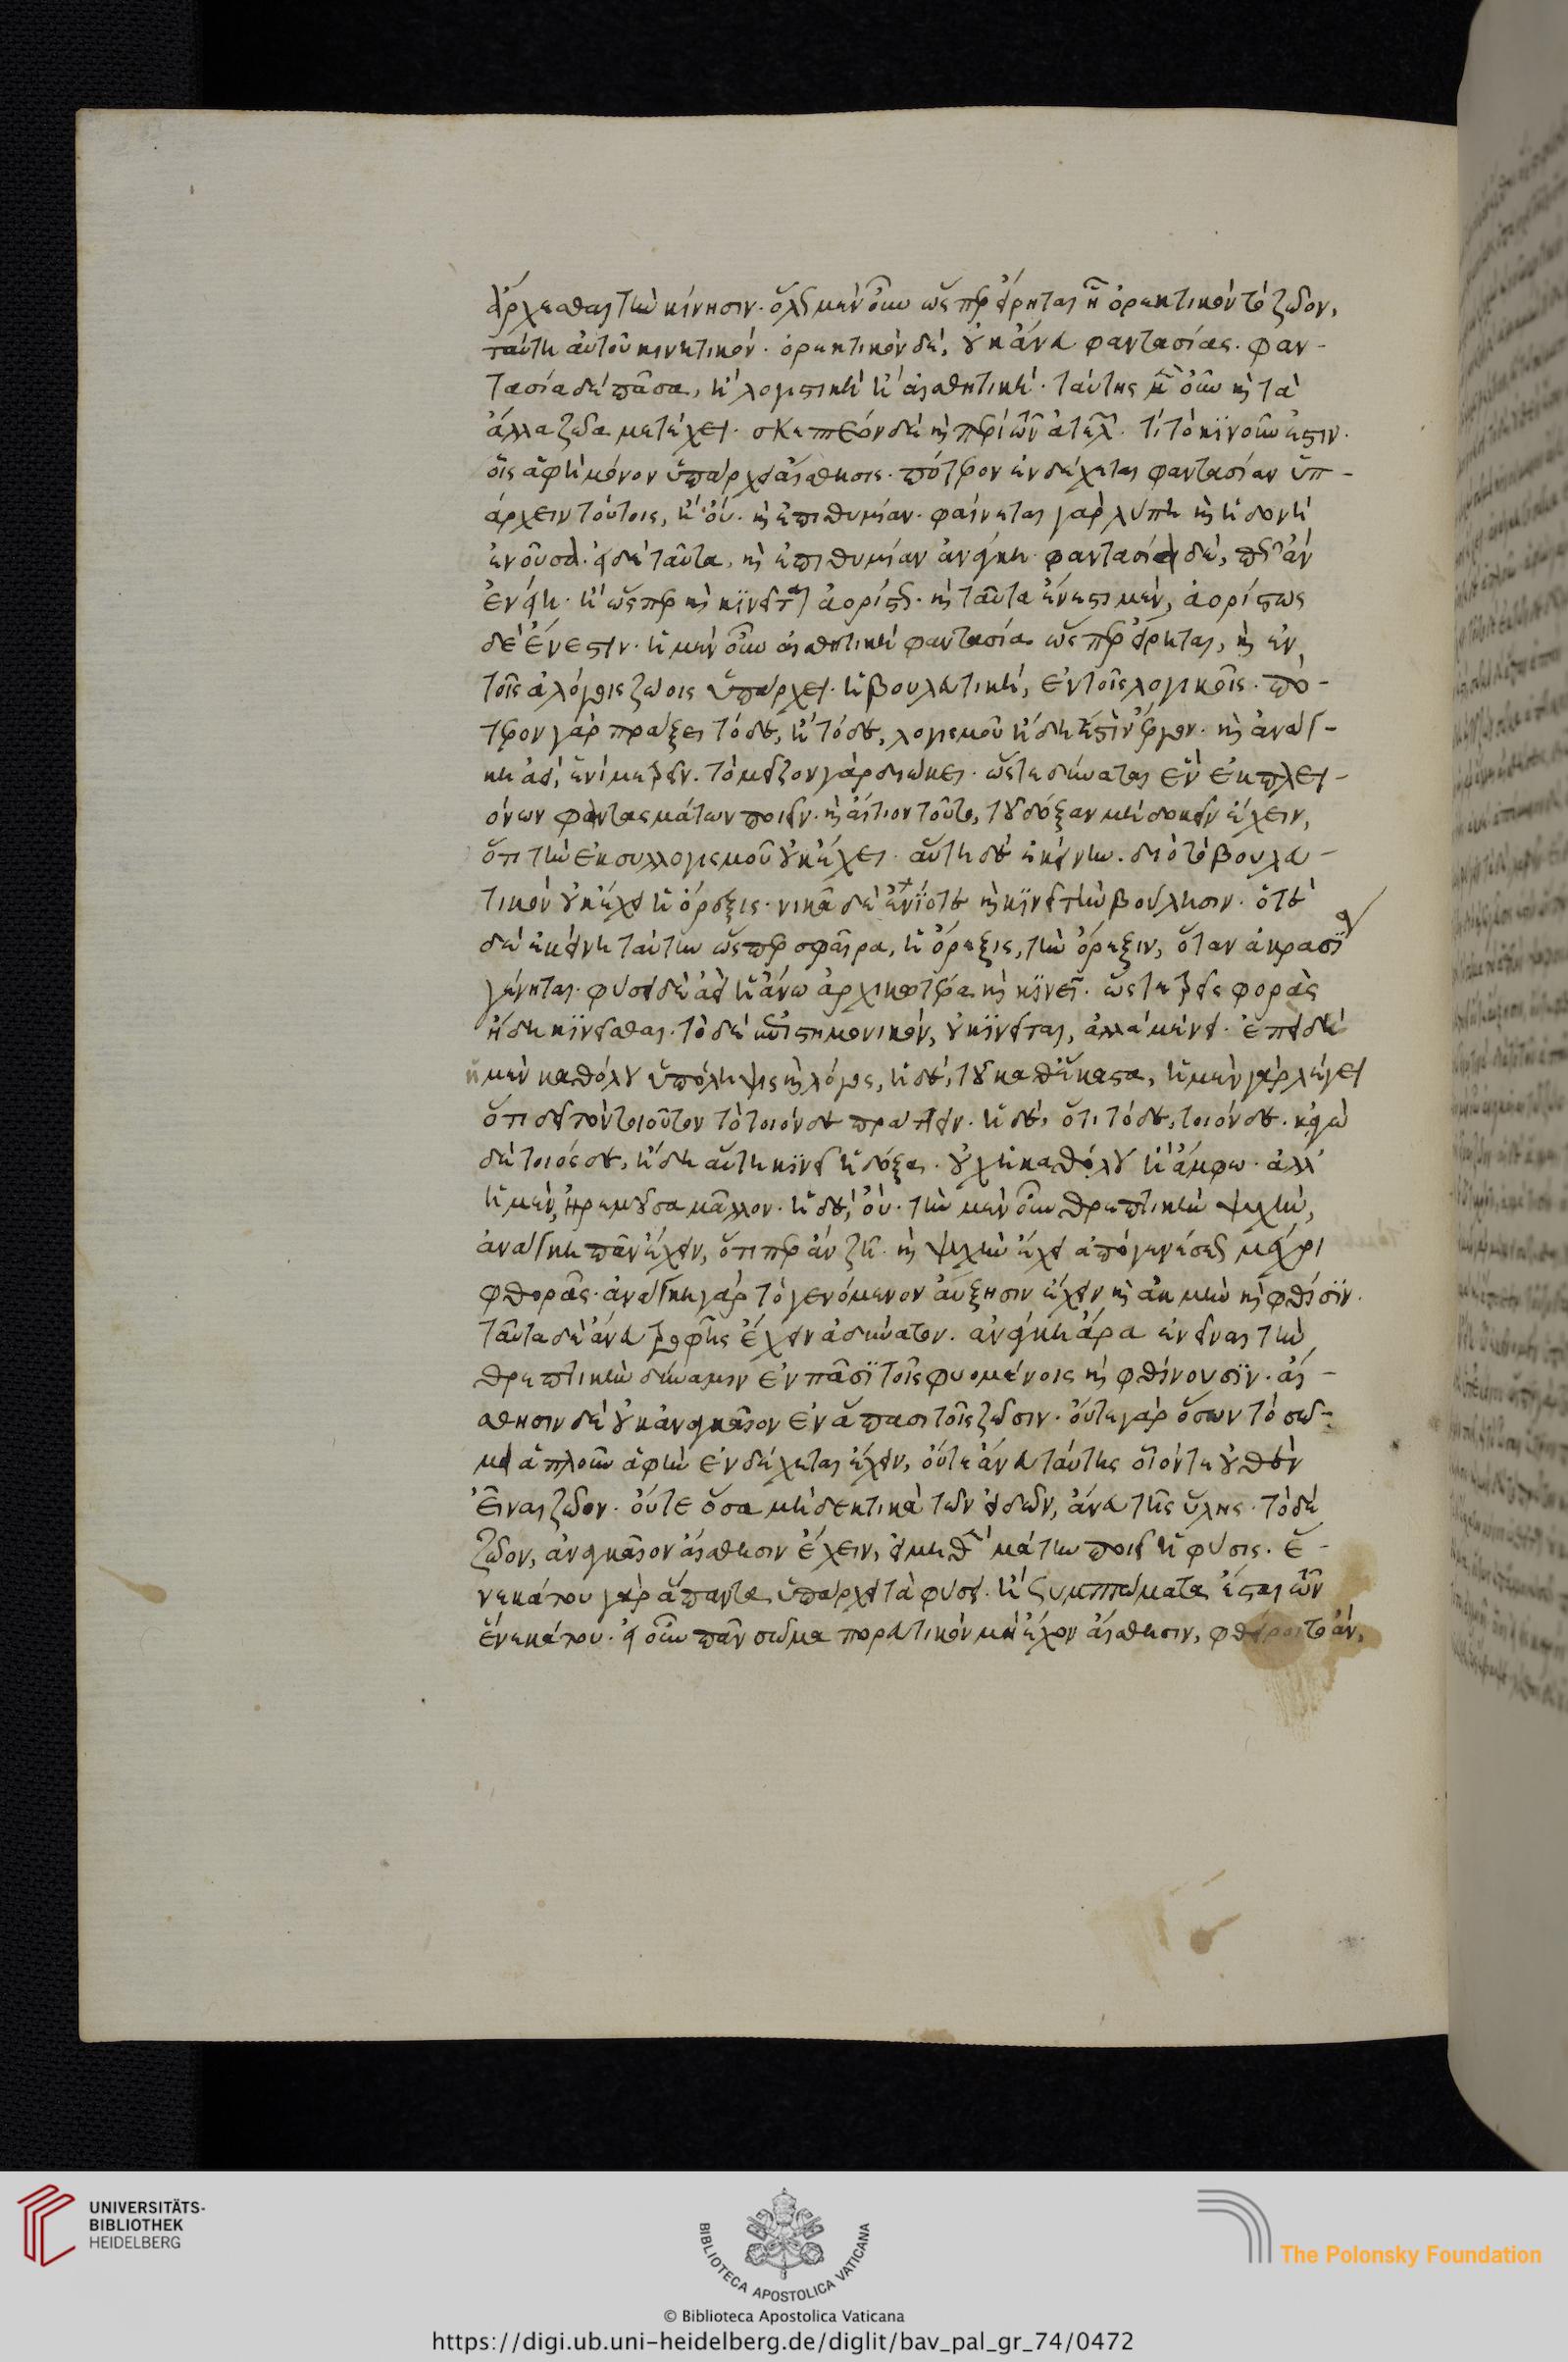 ἄρχεσθαι τὴν κίνησιν. ὅλως μὲν οὖν ὥσπερ εἴρηται ᾗ ὀρεκτικὸν τὸ ζῶον,
ταύτη αὑτοῦ κινητικόν. ὀρεκτικὸν δὲ, οὐκ ἄνευ φαντασίας. φαν-
τασία δὲ πᾶσα, ἢ λογιστικὴ ἢ αἰσθητικὴ. ταύτης μὲν οὖν καὶ τὰ
ἄλλα ζῶα μετέχει. σκεπτέον δὲ καὶ περὶ τῶν ἀτελῶν. τί τὸ κινοῦν ἐστιν.
οἷς ἁφὴ μόνον ὑπάρχει αἴσθησις. πότερον ἐνδέχεται φαντασίαν ὑπ-
άρχειν τούτοις, ἢ οὔ. καὶ ἐπιθυμίαν. φαίνεται γὰρ λύπη καὶ ἡδονὴ
ἐνοῦσα. εἰ δὲ ταῦτα, καὶ ἐπιθυμίαν ἀνάγκη. φαντασία δὲ, πῶς ἂν
ἐνείη. ἢ ὥσπερ καὶ κινεῖται ἀορίστως. καὶ ταῦτα ἔνεστι μὲν, ἀορίστως
δὲ ἔνεστιν. ἡ μὲν οὖν αἰσθητικὴ φαντασία ὥσπερ εἴρηται, καὶ ἐν
τοῖς ἀλόγοις ζώοις ὑπάρχει. ἡ βουλευτικὴ, ἐν τοῖς λογικοῖς. πό-
τερον γὰρ πράξει τόδε, ἢ τόδε, λογισμοῦ ἤδη ἐστὶν ἔργον. καὶ ἀνάγ-
κη ἀεὶ, ἑνὶ μετρεῖν. τὸ μεῖζον γὰρ διώκει. ὥστε δύναται ἓν ἐκ πλει-
όνων φαντασμάτων ποιεῖν. καὶ αἴτιον τοῦτο, τοῦ δόξαν μὴ δοκεῖν ἔχειν,
ὅτι τὴν ἐκ συλλογισμοῦ οὐκ ἔχει. αὕτη δὲ ἐκείνην. διὸ τὸ βουλευ-
τικὸν οὐκ ἔχει ἡ ὄρεξις. νικᾶ δὲ ἐνίοτε καὶ κινεῖ τὴν βούλησιν. ὁτὲ
δὲ ἐκείνη ταύτην ὥσπερ σφαῖρα, ἡ ὄρεξις, τὴν ὄρεξιν, ὅταν ἀκρασία
γένηται. φύσει δὲ ἀεὶ ἡ ἄνω ἀρχικωτέρα καὶ κινεῖ. ὥστε τρεῖς φορὰς
ἤδη κινεῖσθαι. τὸ δὲ ἐπιστημονικὸν, οὐ κινεῖται, ἀλλὰ μένει. ἐπεὶ δὲ
ἡ μὲν καθόλου ὑπόληψις καὶ λόγος, ἡ δὲ, τοῦ καθ' ἕκαστα, ἡ μὲν γὰρ λέγει
ὅτι δεῖ τὸν τοιοῦτον τὸ τοιόνδε πράττειν. ἡ δὲ, ὅτι τόδε, τοιόνδε. κἀγὼ
δὲ τοιόσδε, ἤδη αὕτη κινεῖ ἡ δόξα. οὐχ ἡ καθόλου ἢ ἄμφω. ἀλλ'
ἡ μὲν, ἠρεμοῦσα μᾶλλον. ἡ δὲ, οὔ. τὴν μὲν οὖν θρεπτικὴν ψυχὴν,
ἀνάγκη πᾶν ἔχειν, ὅτι περ ἂν ζῆ. καὶ ψυχὴν ἔχει ἀπὸ γενέσεως μέχρι
φθορᾶς. ἀνάγκη γὰρ τὸ γενόμενον αὔξησιν ἔχειν καὶ ἀκμὴν καὶ φθίσιν.
ταῦτα δὲ ἄνευ τροφῆς ἔχειν ἀδύνατον. ἀνάγκη ἄρα ἐνεῖναι τὴν
θρεπτικὴν δύναμιν ἐν πᾶσι τοῖς φυομένοις καὶ φθίνουσιν. αἴ-
σθησιν δὲ οὐκ ἀναγκαῖον ἐν ἅπασι τοῖς ζῶσιν. οὔτε γὰρ ὅσων τὸ σῶ-
μα ἁπλοῦν ἁφὴν ἐνδέχεται ἔχειν, οὔτε ἄνευ ταύτης οἷόν τε οὐθὲν
εἶναι ζῶον. οὔτε ὅσα μὴ δεκτικὰ τῶν εἰδῶν, ἄνευ τῆς ὕλης. τὸ δὲ
ζῶον, ἀναγκαῖον αἴσθησιν ἔχειν, εἰ μηθὲν μάτην ποιεῖ ἡ φύσις. ἕ-
νεκά του γὰρ ἅπαντα ὑπάρχει τὰ φύσει. ἢ συμπτώματα ἔσται τῶν
ἕνεκά του. εἰ οὖν πᾶν σῶμα πορευτικὸν μὴ ἔχον αἴσθησιν, φθείροιτο ἂν,
UNIVERSITÄTS-
BIBLIOTHEK
HEIDELBERG
BIBLIOTECA APOSTOLICA VATICANA
The Polonsky Foundation
© Biblioteca Apostolica Vaticana
https://digi.ub.uni-heidelberg.de/diglit/bav_pal_gr_74/0472